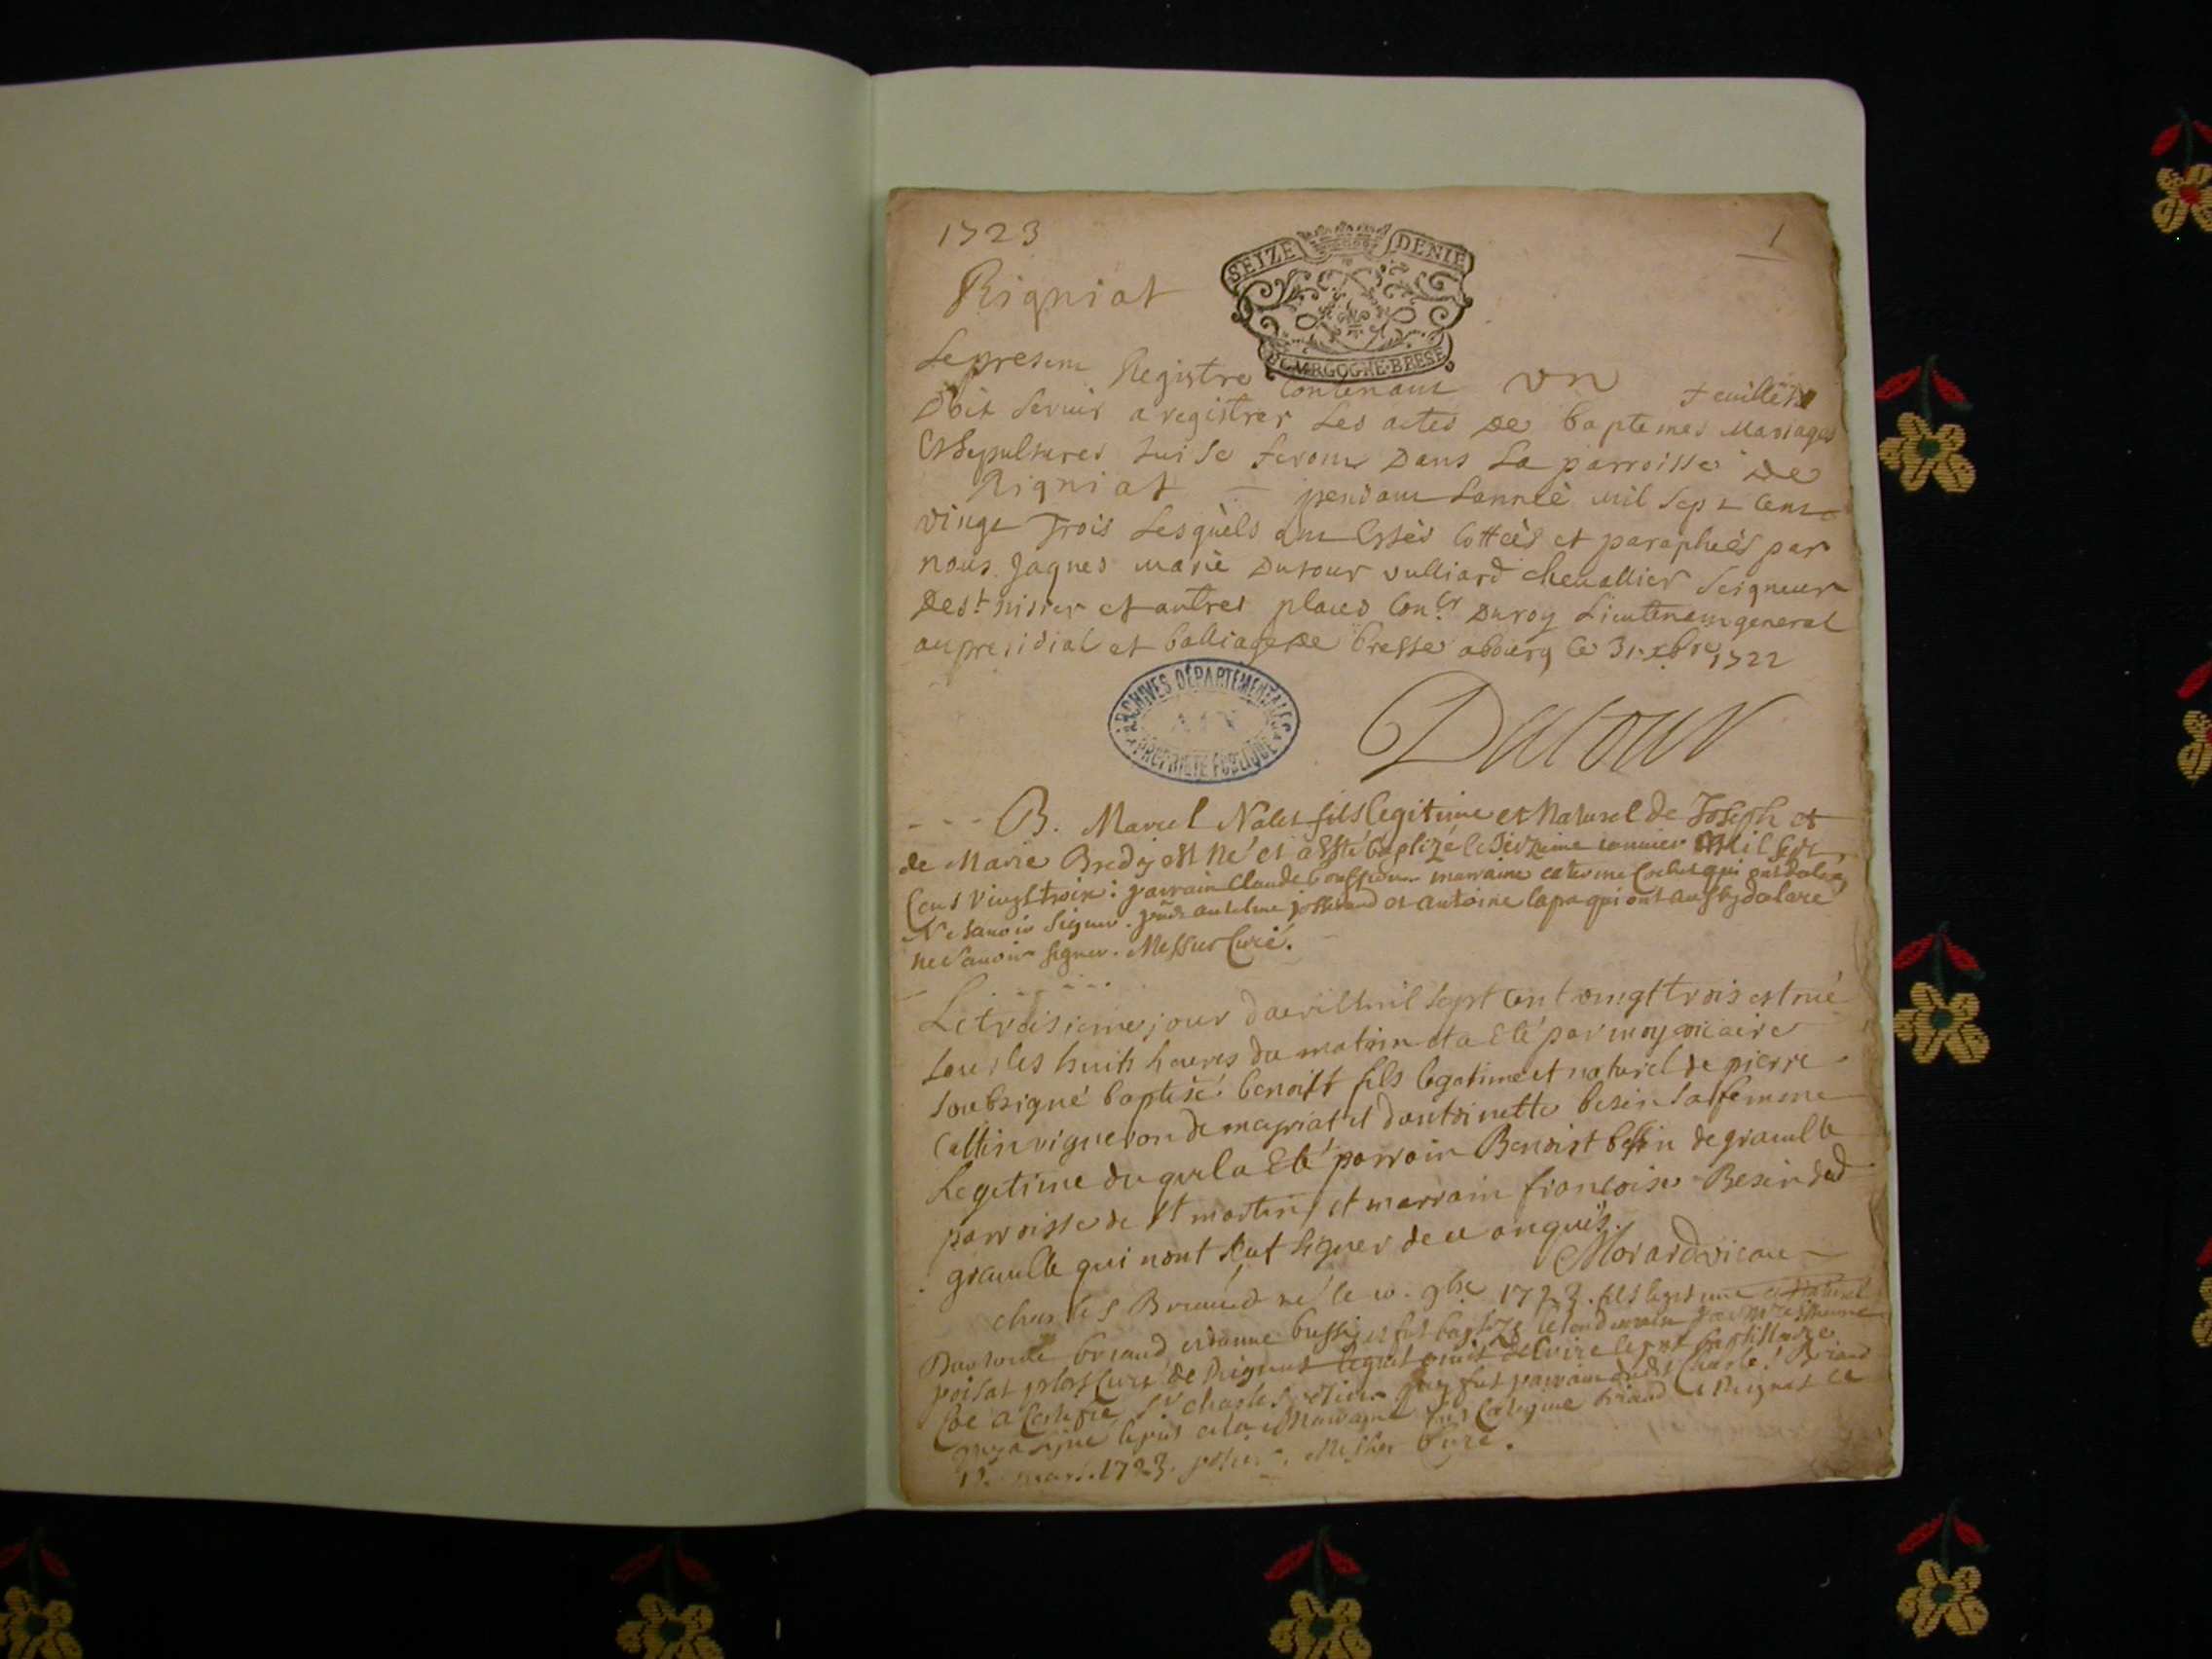 1723
1
SEIZE DENIE
BOURGOGNE·BRESE
Rigniat
Le present Registre Contenant un feuillet
Doit servir a registrer Les actes De baptemes Mariages
Et sepultures qui se feront Dans La parroisse De
Rigniat pendant L'année mil Sept Cent
vingt Trois Lesquels ont estés cottées et paraphées par
nous Jaques marie Dutour vulliard chevallier Seigneur
De st nisier et autres places Con.er Du roy Lieutenant general
au presidial et balliage De bresse a bourg le 31. xbre 1722
ARCHIVES DÉPARTEMENTALES
AIN
PROPRIÉTÉ PUBLIQUE
Dutour
B. Marcel Nalet fils legitime et Naturel de Joseph et
de Marie Bredy est né et a Esté baptizé le seizieme ianvier Mil Sept
Cent vingt trois: parrain Claude marraine caterine Cochet qui ont
Ne savoir signer. anthelme josserand et antoine lapa qui ont aussy
ne savoir signer. Messur Curé.
Le troisieme jour d'avril mil sept cent vingt trois est né
sou les huits heures du matin et a Eté par moy vicaire
soubsigné baptisé benoist fils legetime et naturel de pierre
Cattin vigneron de et d'antoinette besin sa femme
Legetime du quel a Eté parrain Benoist besin de graulle
parroisse de st martin et marrain françoise Besin dud
graulle qui n'ont scut signer de ce enquis.
Morard vicaire
charles Briaud né le 10. 9bre 1722. fils legitime et Naturel
briaud et d'anne et fut baptizé le lendemain
poisat Curé de Rignat
Sr charles fut parrain dudt Charle Briaud
signé Briaud a Rignat ce
mars. 1723. Messur Curé.